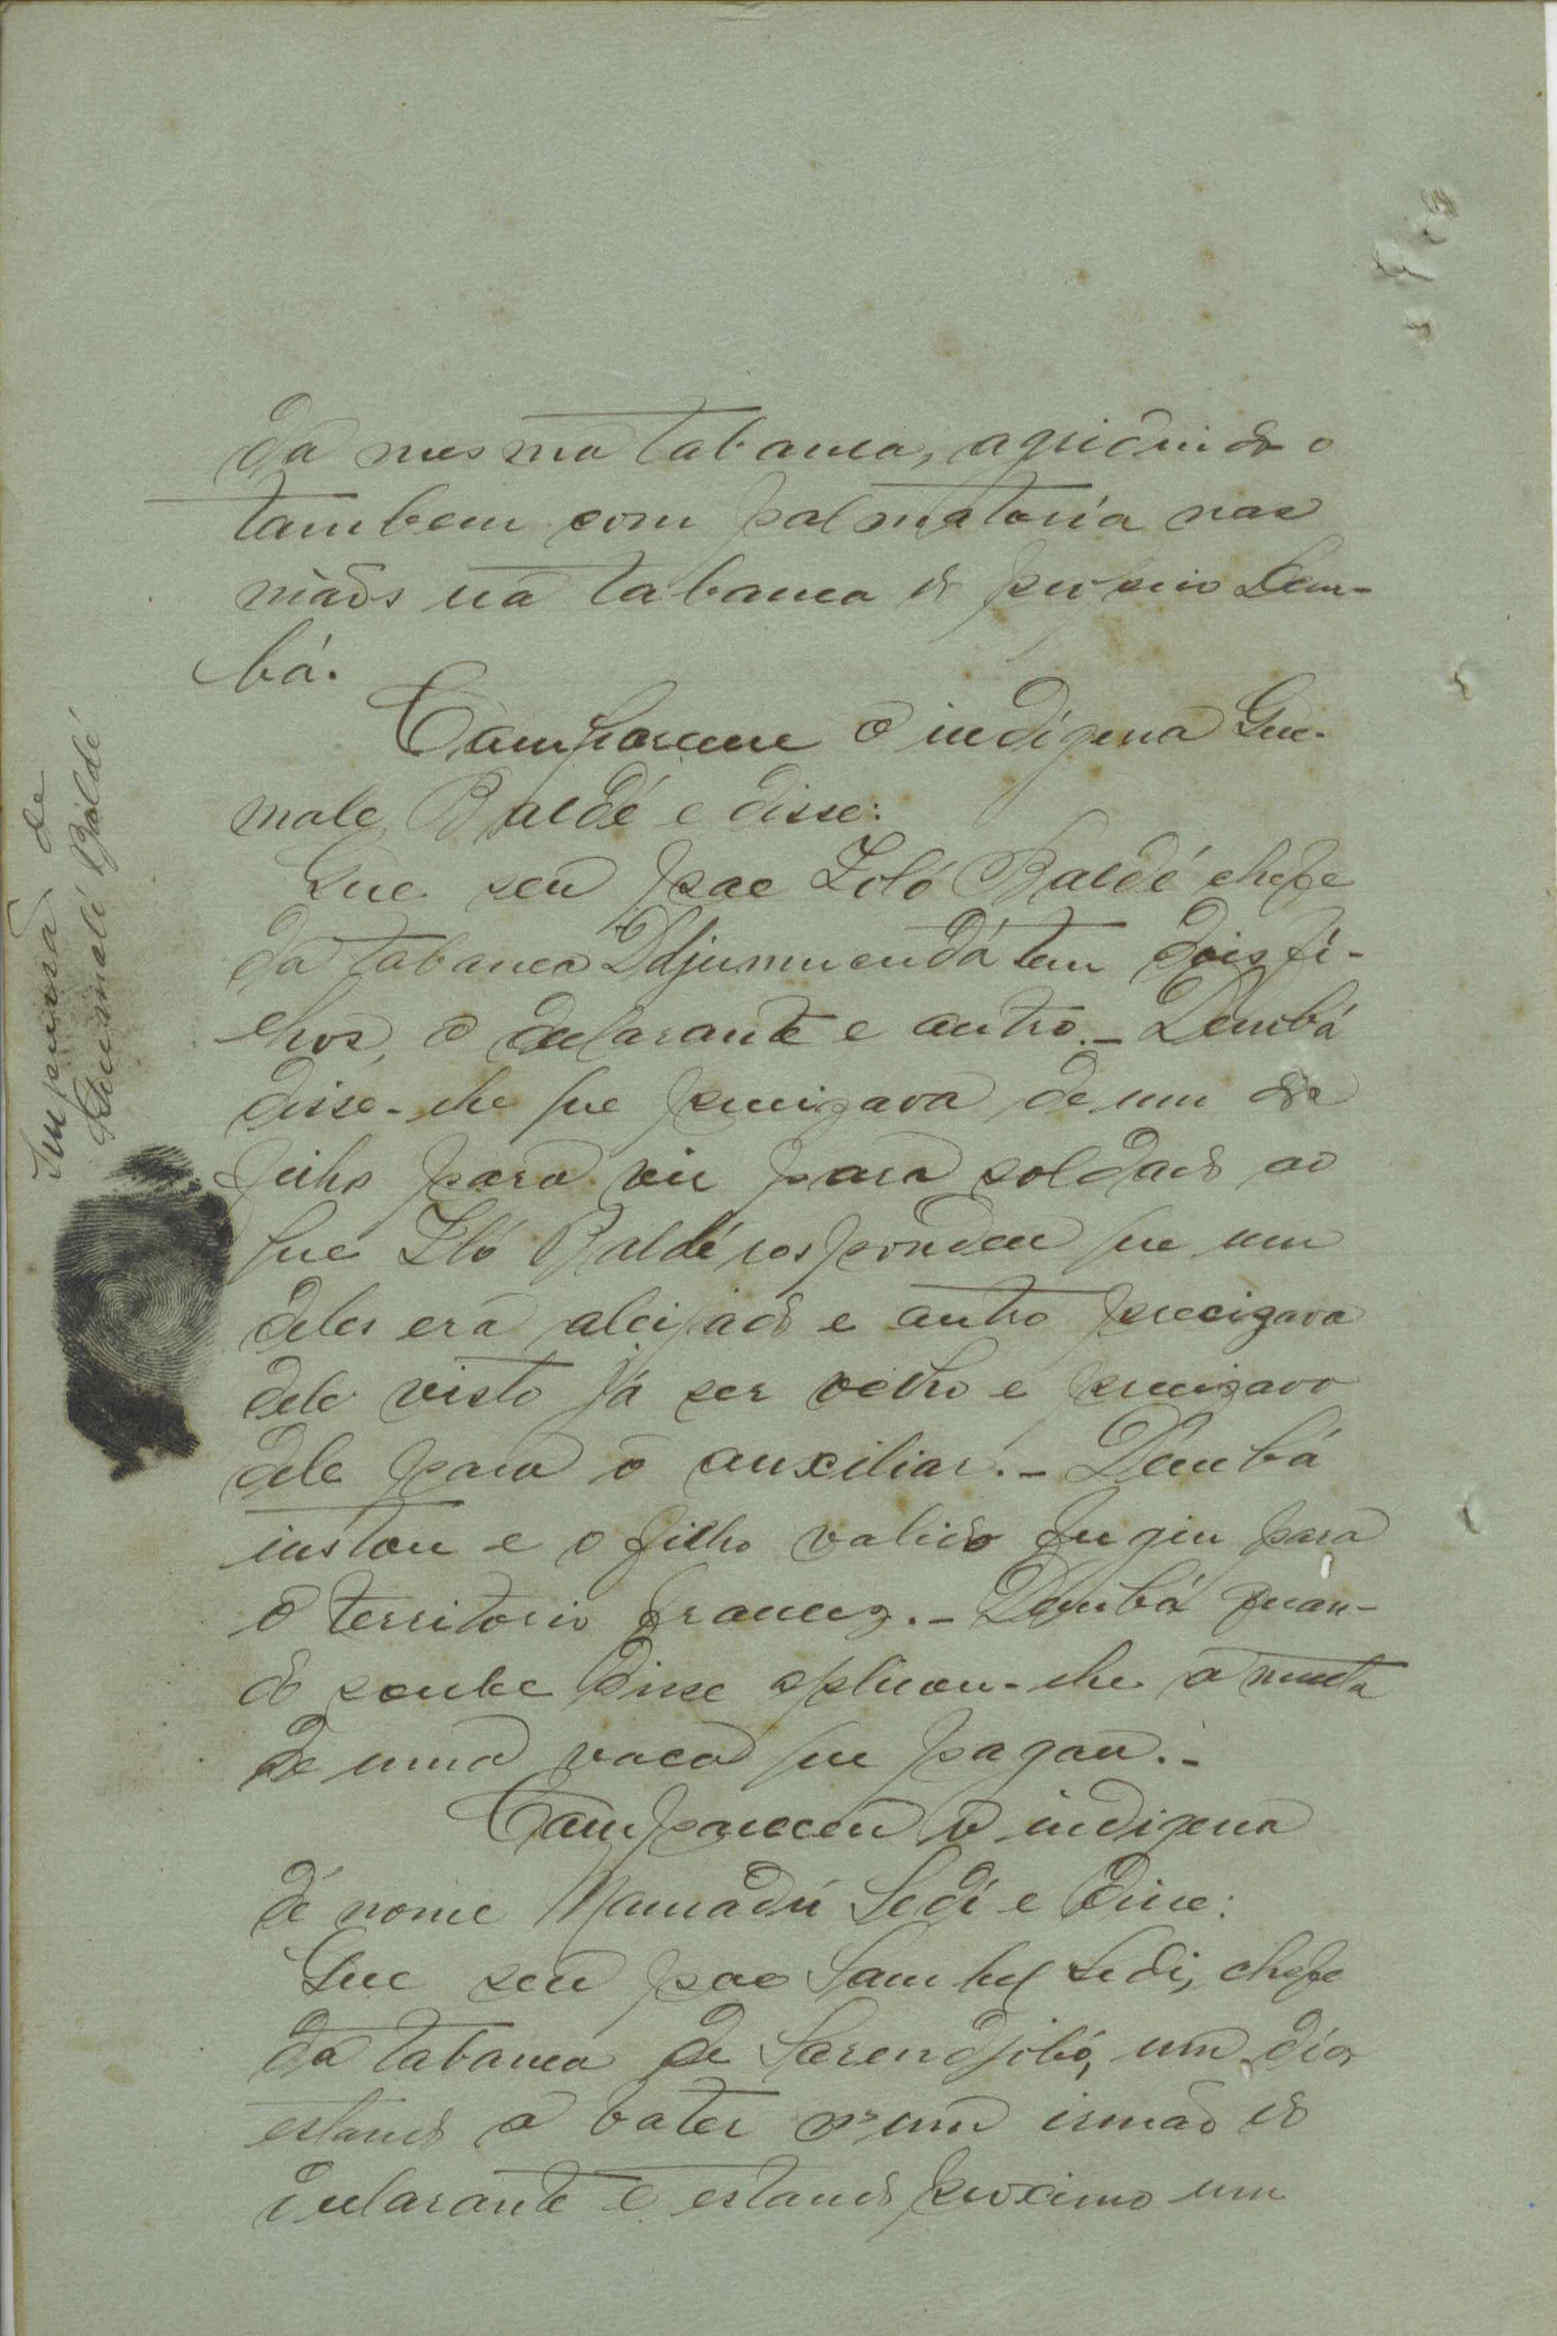 da mesma tabanca, agridindo o
tambem com palmatoria nas
mãos na tabanca do proprio Dem-
bá.
Compareceu o indígena Gue-
male Baldé e disse:
Que seu pae Loló Baldé chefe
da tabanca tem dois fi-
lhos, o declarante e outro. - Dembá
disse-lhe que precizava de um dos
filhos para vir para soldado ao
que Baldé respondeu que um
deles era aleijado e outro precizava
dele visto já ser velho e precizava
dele para o auxiliar. - Dembá
instou e o filho valido fugiu para
o territorio francez. - Dembá quan-
do soube disse aplicou-lhe a multa
de uma vaca que pagou. -
Compareceu o indigena
de nome Mamadú Sedi e disse:
Que seu pae Sedi, chefe
da tabanca de Sarendjobó, um dia
estando a bater n'um irmão do
declarante e estando proximo um
Impressão de
Guemalé Baldé